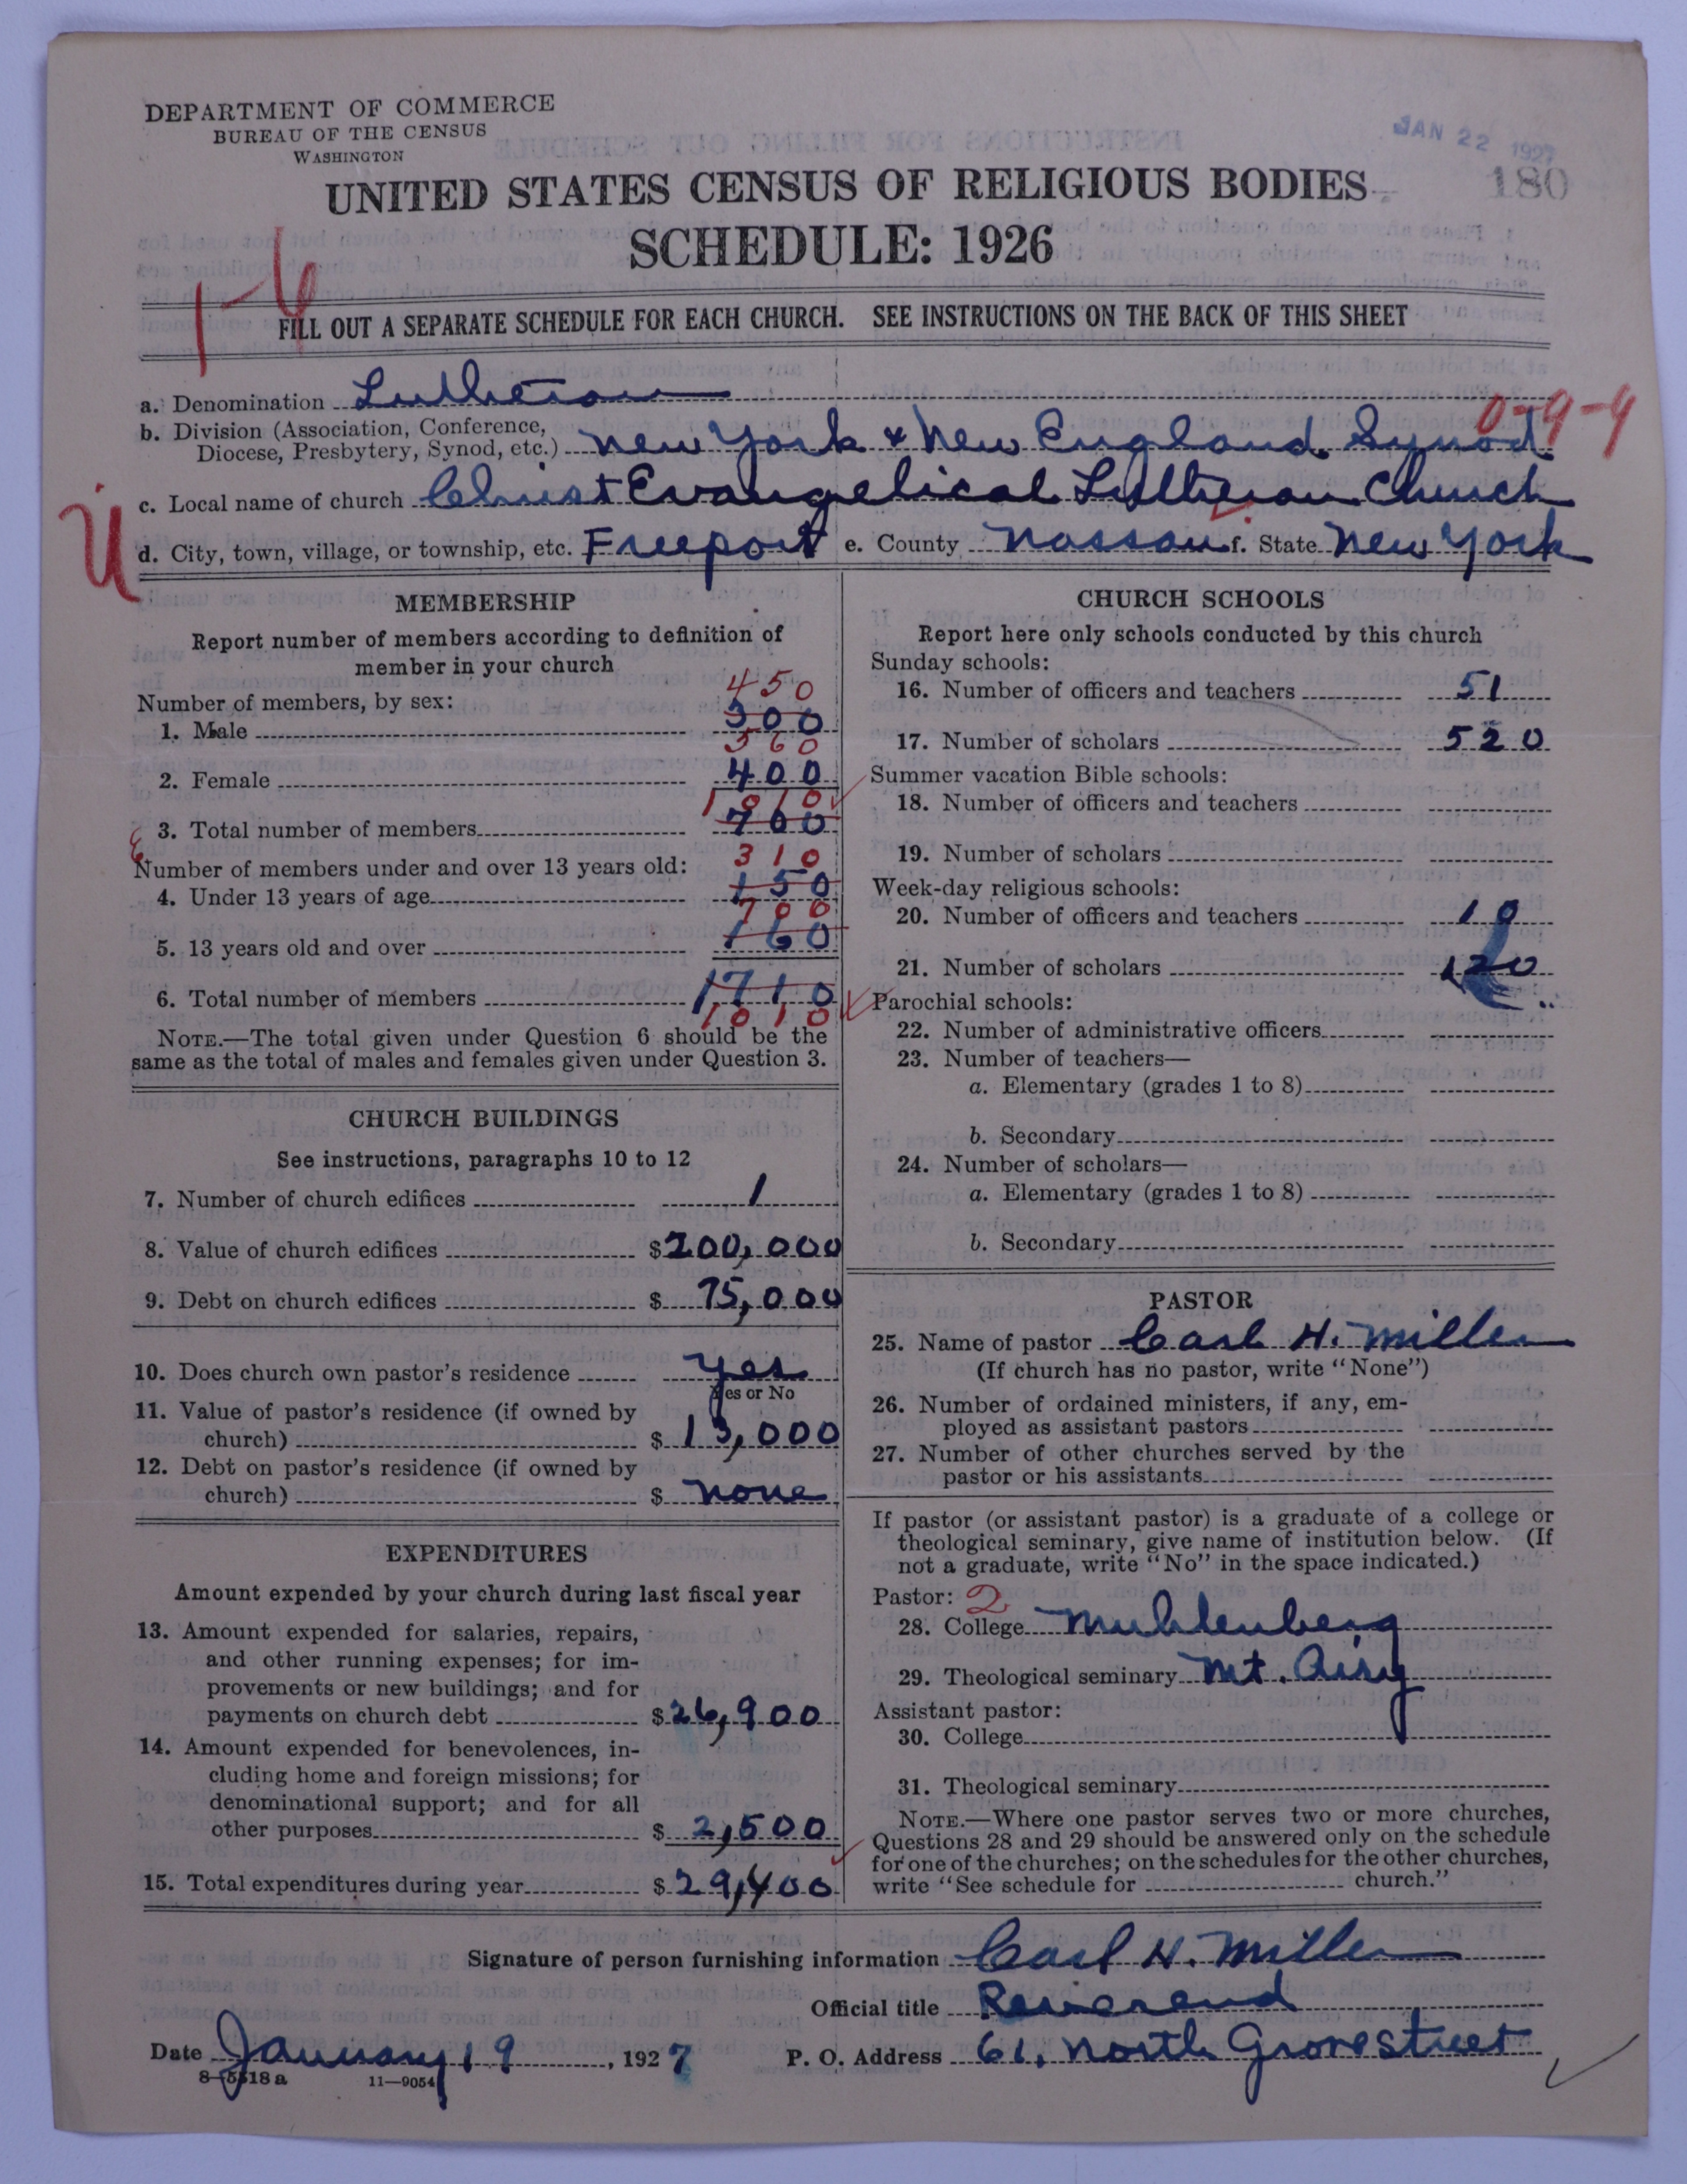 DEPARTMENT OF COMMERCE
BUREAU OF THE CENSUS
WASHINGTON
JAN 22 1927
180
UNITED STATES CENSUS OF RELIGIOUS BODIES
SCHEDULE: 1926
1-6
FILL OUT A SEPARATE SCHEDULE FOR EACH CHURCH. SEE INSTRUCTIONS ON THE BACK OF THIS SHEET
a. Denomination Lutheran
0-9-4
b. Division (Association, Conference, Diocese, Presbytery, Synod, etc.) New York & New England Synod
c. Local name of church Christ Evangelical Lutheran Church
U
d. City, town, village, or township, etc. Freeport e. County Nassau f. State New York
MEMBERSHIP
Report number of members according to definition of
member in your church
Number of members, by sex:
450
1. Male 300
560
2. Female 400
1010
3. Total number of members 700
Number of members under and over 13 years old:
310
4. Under 13 years of age 150
700
5. 13 years old and over 160
6. Total number of members 1710
1010
NOTE.—The total given under Question 6 should be the
same as the total of males and females given under Question 3.
CHURCH BUILDINGS
See instructions, paragraphs 10 to 12
7. Number of church edifices 1
8. Value of church edifices $200,000
9. Debt on church edifices $75,000
10. Does church own pastor's residence yes
Yes or No
11. Value of pastor's residence (if owned by
church) $13,000
12. Debt on pastor's residence (if owned by
church) $none
EXPENDITURES
Amount expended by your church during last fiscal year
13. Amount expended for salaries, repairs,
and other running expenses; for im-
provements or new buildings; and for
payments on church debt $26,900
14. Amount expended for benevolences, in-
cluding home and foreign missions; for
denominational support; and for all
other purposes $2,500
15. Total expenditures during year $29,400
CHURCH SCHOOLS
Report here only schools conducted by this church
Sunday schools:
16. Number of officers and teachers 51
17. Number of scholars 520
Summer vacation Bible schools:
18. Number of officers and teachers
19. Number of scholars
Week-day religious schools:
20. Number of officers and teachers 10
21. Number of scholars 120
Parochial schools:
22. Number of administrative officers
23. Number of teachers—
a. Elementary (grades 1 to 8)
b. Secondary
24. Number of scholars—
a. Elementary (grades 1 to 8)
b. Secondary
PASTOR
25. Name of pastor Carl H. Miller
(If church has no pastor, write "None")
26. Number of ordained ministers, if any, em-
ployed as assistant pastors
27. Number of other churches served by the
pastor or his assistants
If pastor (or assistant pastor) is a graduate of a college or
theological seminary, give name of institution below. (If
not a graduate, write "No" in the space indicated.)
Pastor: 2
28. College Muhlenberg
29. Theological seminary Mt. Airy
Assistant pastor:
30. College
31. Theological seminary
NOTE.—Where one pastor serves two or more churches,
Questions 28 and 29 should be answered only on the schedule
for one of the churches; on the schedules for the other churches,
write "See schedule for church."
Signature of person furnishing information Carl H. Miller
Official title Reverend
Date January 19, 1927 P. O. Address 61, North Grove street
8—5518a 11—9054